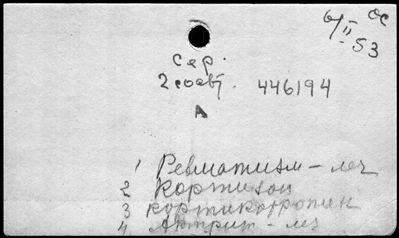 6/II-53 ос
Сер.
2 соавт. 446194
А
1 Ревматизм – леч
2 Кортизон
3 Кортикотропин
4 Артрит – леч